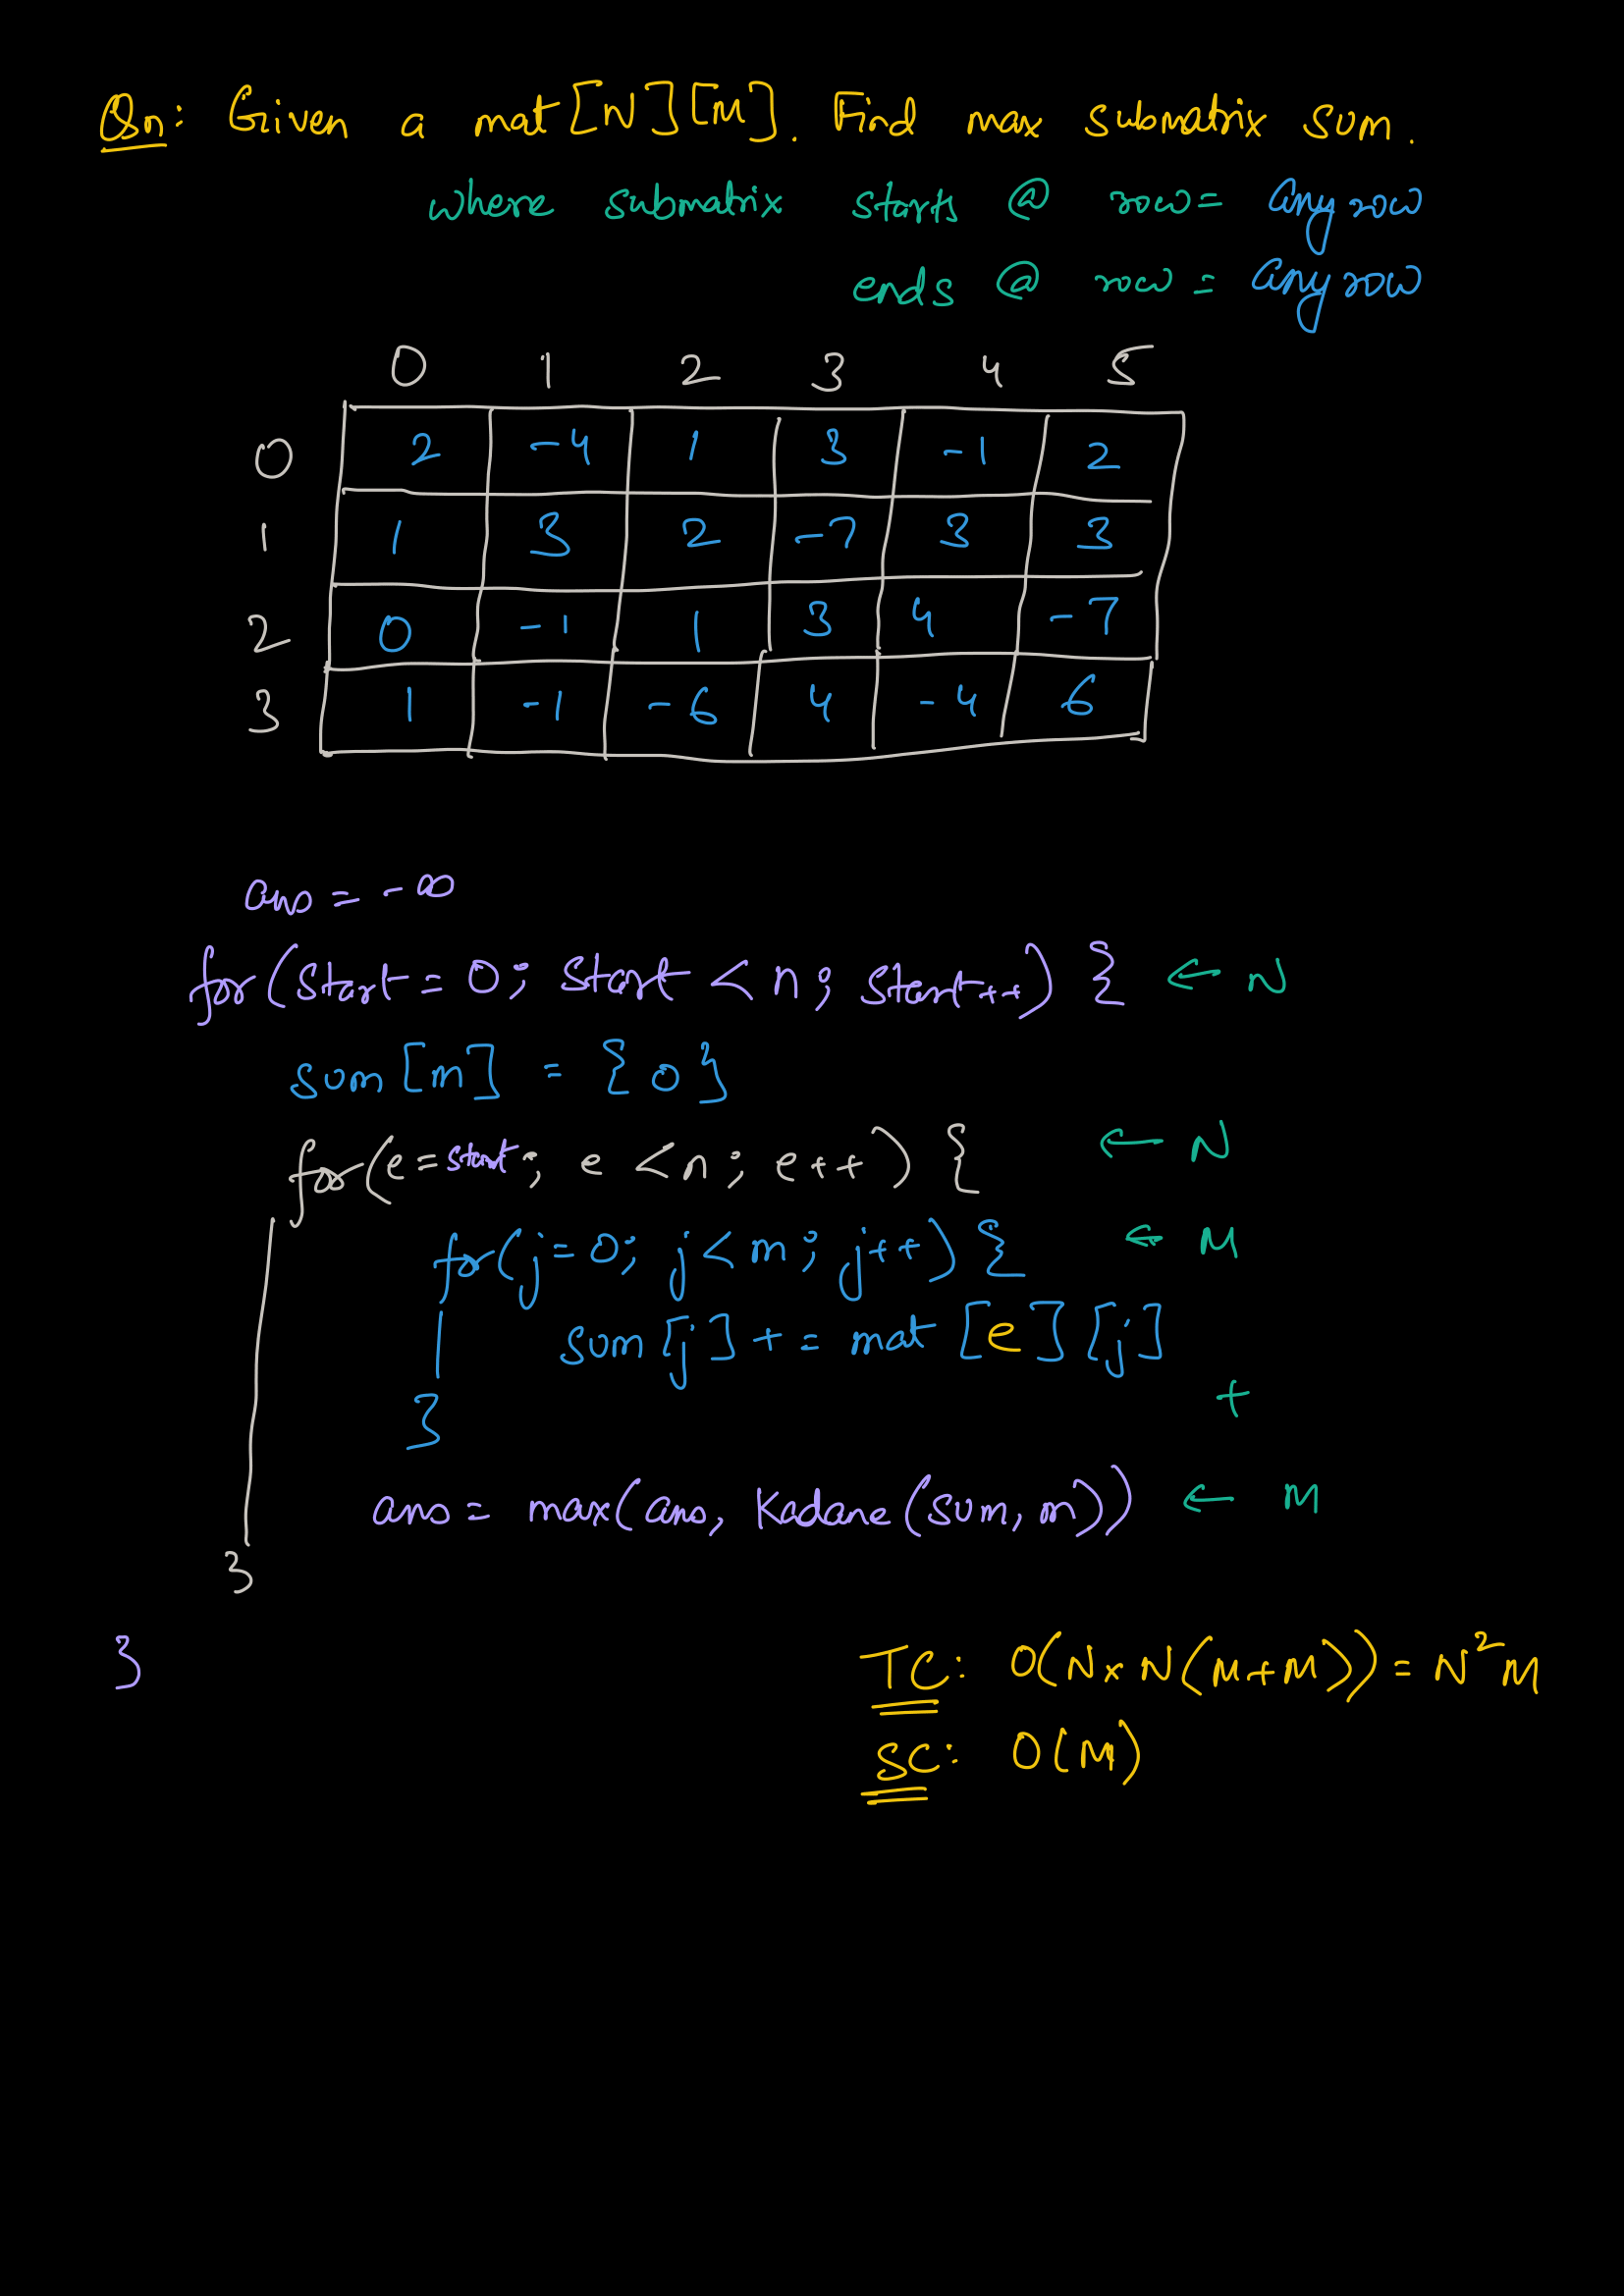 Qn: Given a mat[N][M]. Find max submatrix sum.
where submatrix starts @ row = any row
ends @ row = any row
0 1 2 3 4 5
0 2 -4 1 3 -1 2
1 1 3 2 -7 3 3
2 0 -1 1 3 4 -7
3 1 -1 -6 4 -4 6
ans = -∞
for(start = 0; start < n; start++) { ← N
sum[m] = {0}
for(e = start; e < n; e++) { ← N
for(j = 0; j < m; j++) { ← M
sum[j] += mat[e][j]
} +
ans = max(ans, Kadane(sum, m)) ← M
}
}
TC: O(N×N(M+M)) = N²M
SC: O(M)